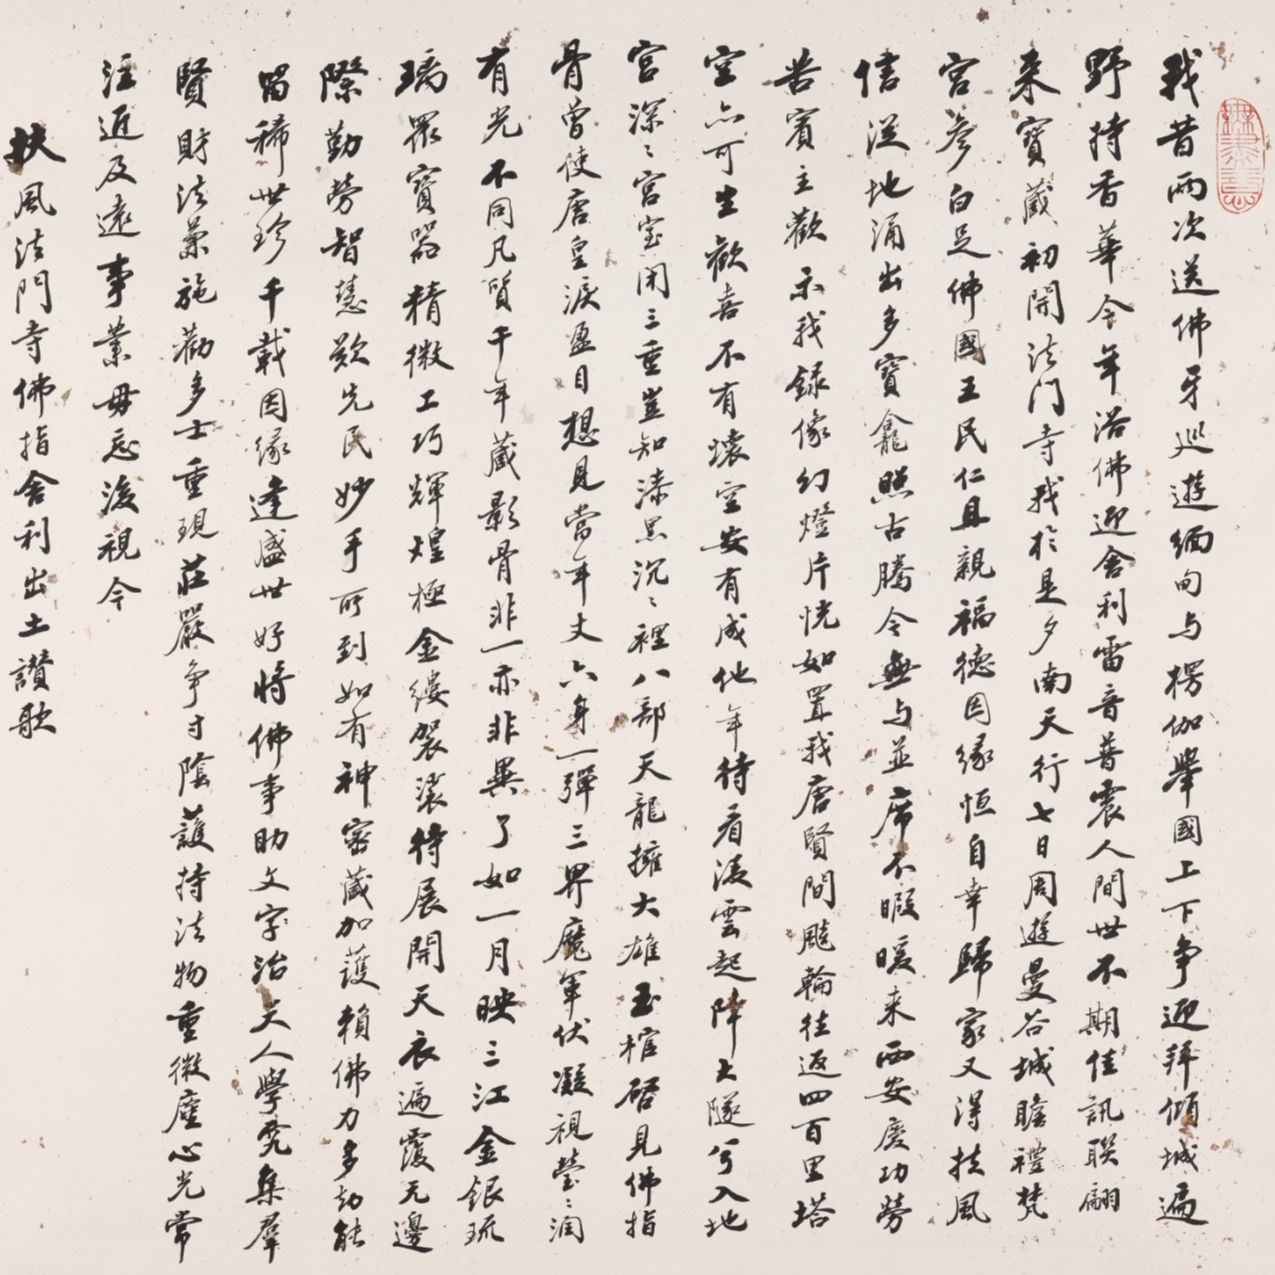 我昔兩次送佛牙巡遊緬甸与楞伽舉國上下爭迎拜傾城遍
野持香華今年浴佛迎舍利雷音普震人間世不期佳訊联翩
来寶藏初開法门寺我於是夕南天行七日周遊曼谷城瞻禮梵
宮參白足佛國王民仁且親福德因緣恒自幸歸家又得扶風
信従地涌出多寶龕照古騰今無与並席不暇暖来西安慶功勞
苦賓主歡示我録像幻燈片恍如置我唐賢間飈輪往返四百里塔
空亦可生歡喜不有壞空安有成他年待看淩雲起降大隧兮入地
宮深〻宮室闭三重豈知漆黑沉〻裡八部天龍擁大雄玉棺啓見佛指
骨曾使唐皇淚盈目想見當年丈六身一彈三界魔軍伏凝視瑩〻润
有光不同凡質千年藏影骨非一亦非異了如一月映三江金銀琉
璃眾寶器精微工巧輝煌極金縷袈裟待展開天衣遍覆无邊
際勤勞智慧歎先民妙手所到如有神密藏加護賴佛力多劫能
留稀世珍千載因緣逢盛世好將佛事助文字治天人學究集羣
賢財法兼施勸多士重現莊嚴爭寸陰護持法物重微塵心光常
注近及遠事業毋忘後視今
扶風法門寺佛指舍利出土讚歌
無盡意